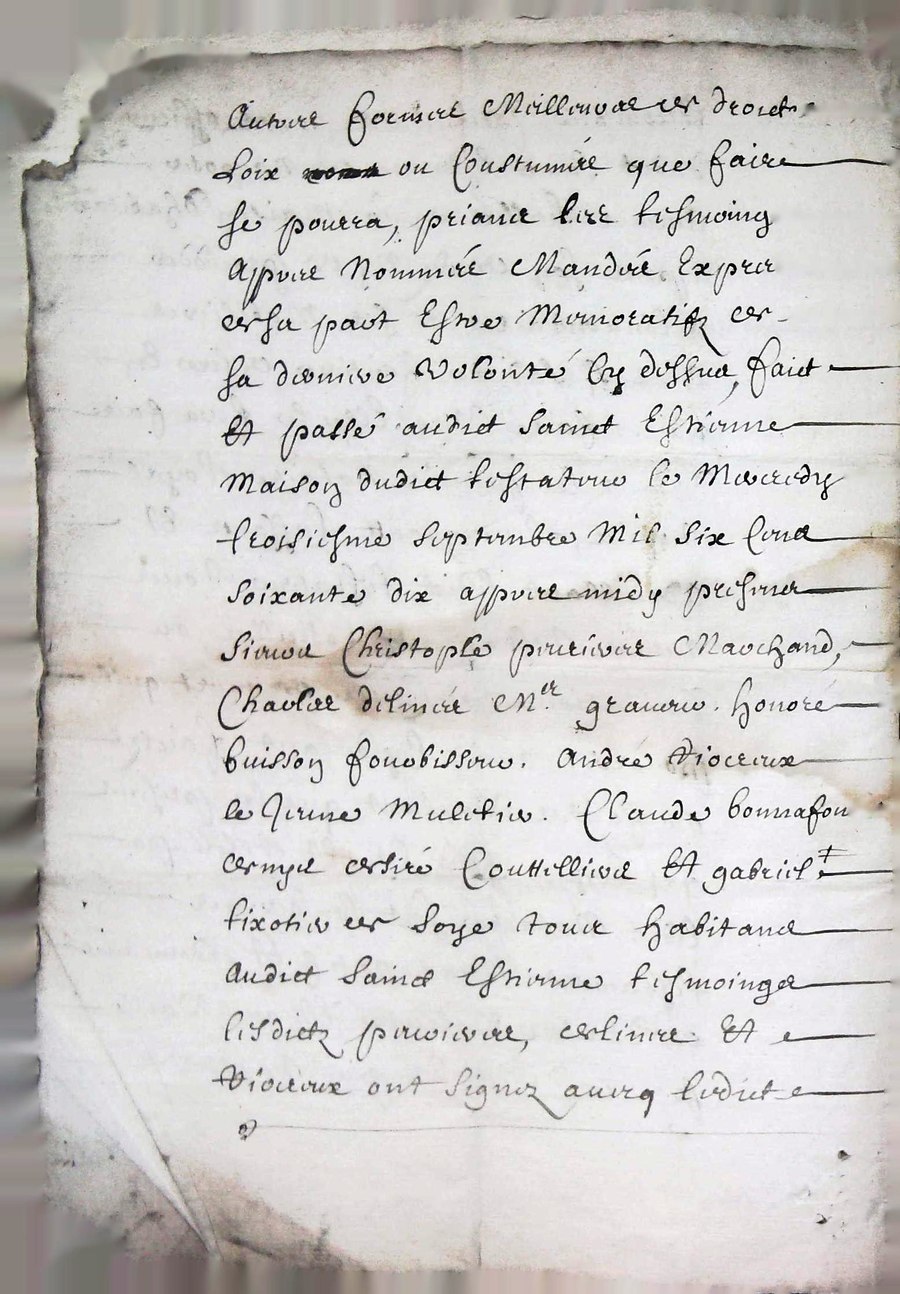 Autres formes Meilleures de droict,
Loix ou Coustumes que faire
se pourra, priant les tesmoing
Appres Nommés Mandés Expres
de sa part Estre Memoratifz de
sa derniere Volonté Cy dessus, faict
Et passé audict Sainct Estienne
Maison dudict testateur le Mercredy
troisiesme Septembre Mil Six Cent
Soixante dix appres midy presents
Sieurs Christophle Marchand,
Charles M.er graveur. honoré
buisson fourbisseur. André
le Jeune Muletier. Claude bonnafon
Couttellier Et gabriel
de Soye tous habitans
Audict Sainct Estienne tesmoings
lesdictz Et
ont Signez avecq ledict